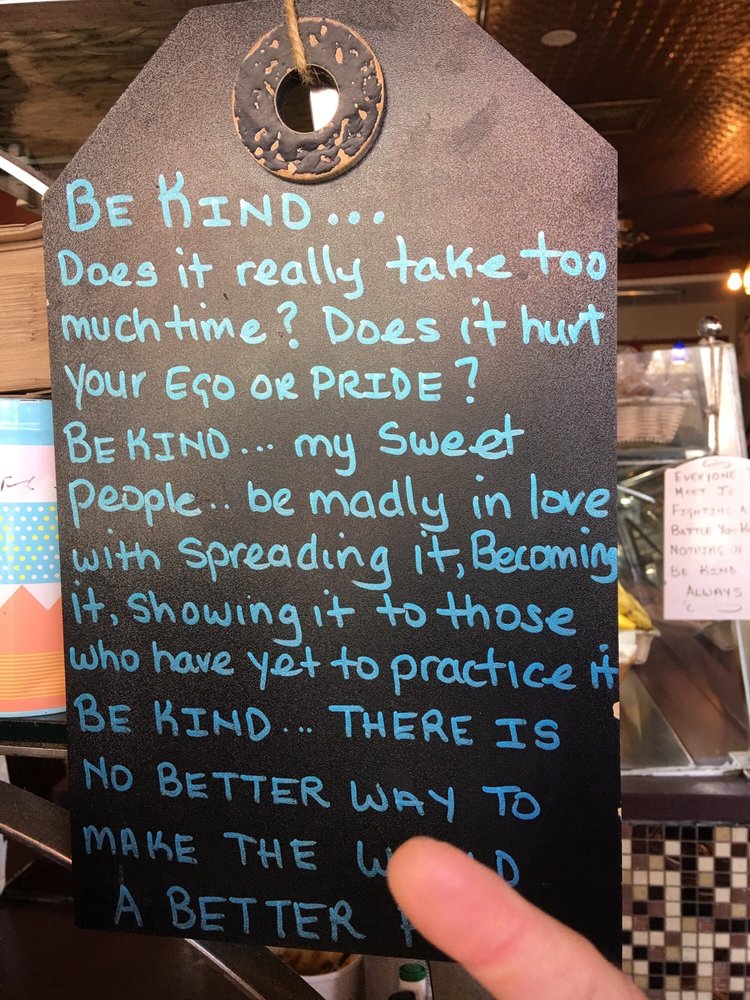 BE KIND...
Does it really take too
much time? Does it hurt
your EGO OR PRIDE?
BE KIND... my Sweet
people.. be madly in love
with spreading it, Becoming
it, showing it to those
who have yet to practice it
BE KIND... THERE IS
NO BETTER WAY TO
MAKE THE
A BETTER
EVERYONE
MEET IS
FIGHTING A
BATTLE YOU
NOTHING OF
BE KIND
ALWAYS